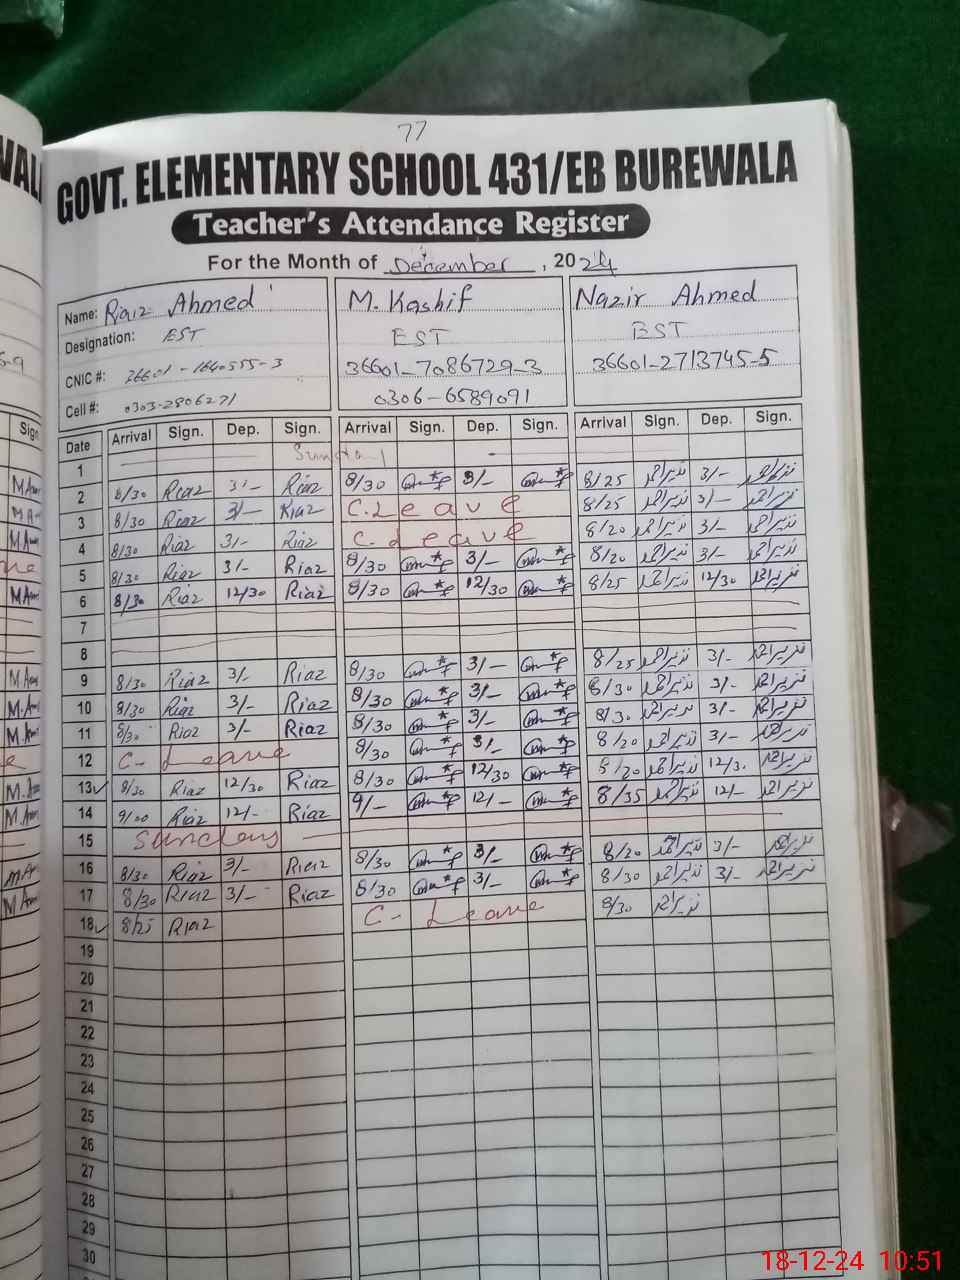 77
GOVT. ELEMENTARY SCHOOL 431/EB BUREWALA
Teacher's Attendance Register
For the Month of December, 2024
Name: Riaz Ahmed M. Kashif Nazir Ahmed
Designation: EST EST EST
CNIC #: 36601-1640555-3 36601-7086729-3 36601-2713745-5
Cell #: 0303-2806271 0306-6589091
Sign
Date Arrival Sign. Dep. Sign. Arrival Sign. Dep. Sign. Arrival Sign. Dep. Sign.
1 Sunday
2 8/30 Riaz 3/- Riaz 8/30 3/- 8/25 نذیر احمد 3/- نذیر احمد
3 8/30 Riaz 3/- Riaz C. Leave 8/25 نذیر احمد 3/- نذیر احمد
4 8/30 Riaz 3/- Riaz C. Leave 8/20 نذیر احمد 3/- نذیر احمد
5 8/30 Riaz 3/- Riaz 8/30 3/- 8/20 نذیر احمد 3/- نذیر احمد
6 8/30 Riaz 12/30 Riaz 8/30 12/30 8/25 نذیر احمد 12/30 نذیر احمد
7
8
9 8/30 Riaz 3/- Riaz 8/30 3/- 8/25 نذیر احمد 3/- نذیر احمد
10 8/30 Riaz 3/- Riaz 8/30 3/- 8/30 نذیر احمد 3/- نذیر احمد
11 8/30 Riaz 3/- Riaz 8/30 3/- 8/30 نذیر احمد 3/- نذیر احمد
12 C- Leave 8/30 3/- 8/20 نذیر احمد 3/- نذیر احمد
13 8/30 Riaz 12/30 Riaz 8/30 12/30 8/20 نذیر احمد 12/3. نذیر احمد
14 9/00 Riaz 12/- Riaz 9/- 12/- 8/35 نذیر احمد 12/- نذیر احمد
15 Sunday
16 8/30 Riaz 3/- Riaz 8/30 3/- 8/20 نذیر احمد 3/- نذیر احمد
17 8/30 Riaz 3/- Riaz 8/30 3/- 8/30 نذیر احمد 3/- نذیر احمد
18 8/25 Riaz C- Leave 8/30 نذیر احمد
19
20
21
22
23
24
25
26
27
28
29
30
18-12-24 10:51